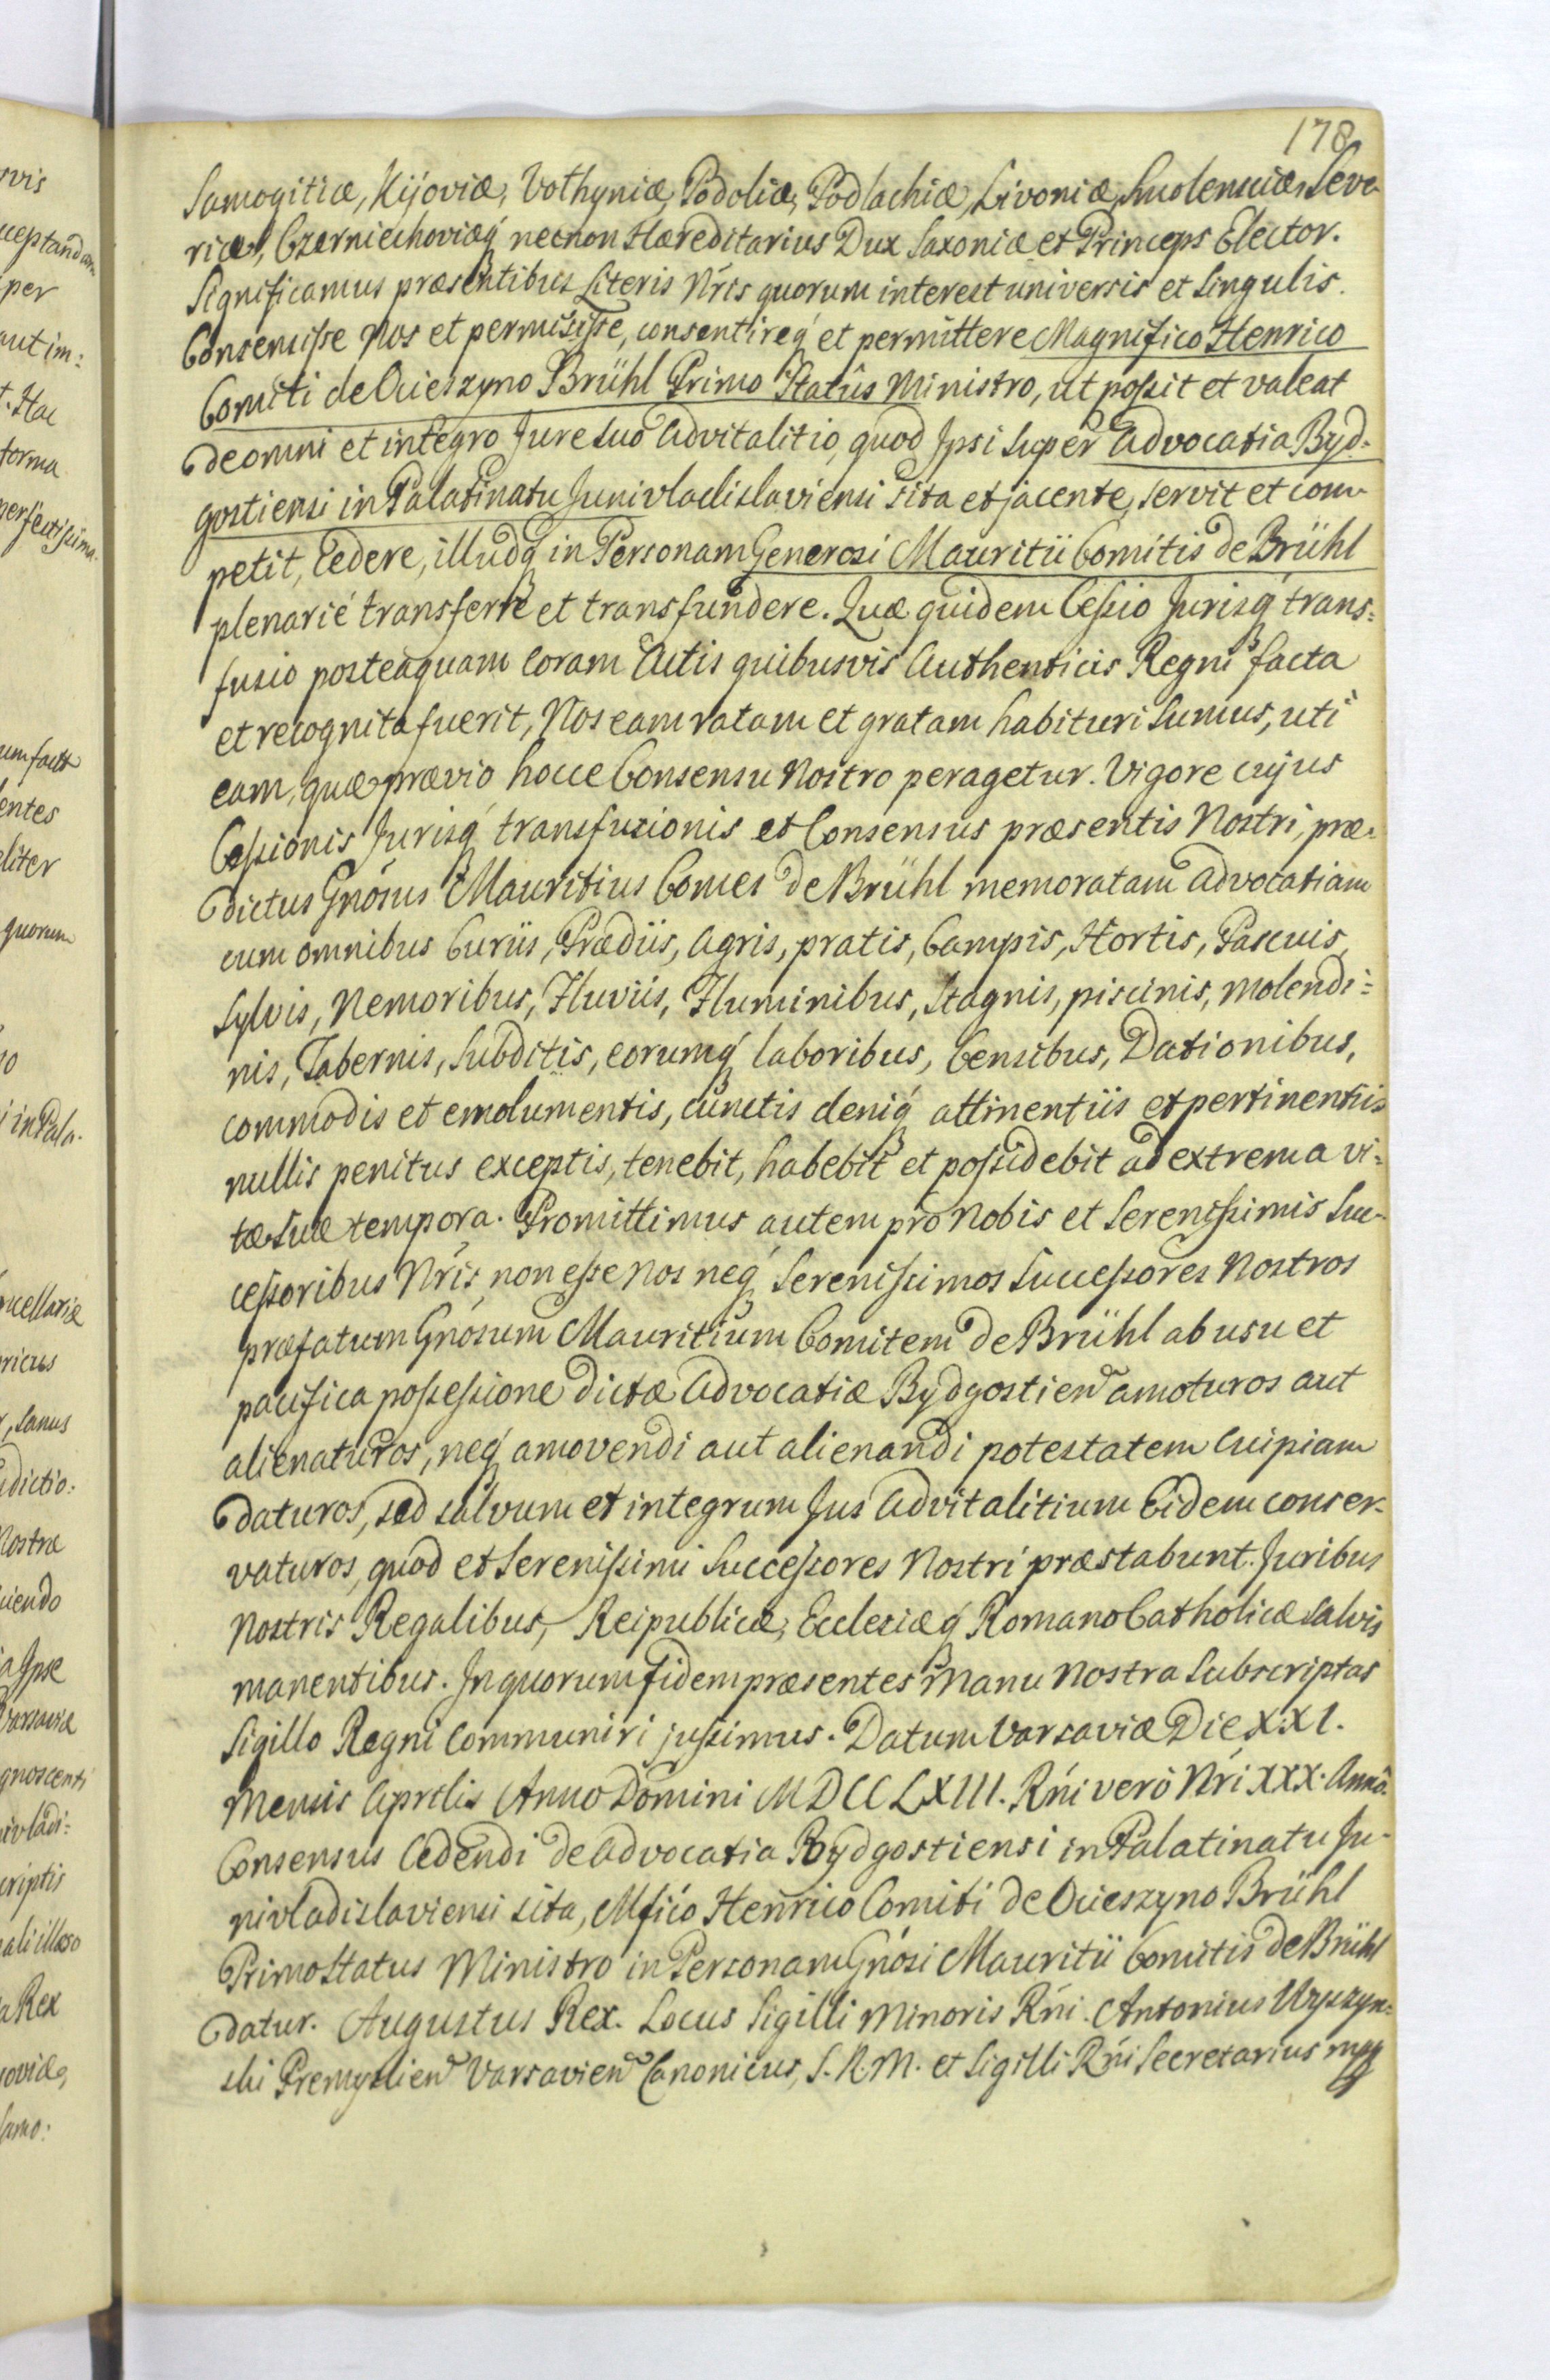 178
Samogitiæ, Kijoviæ, Volhyniæ, Podoliæ, Podlachiæ, Livoniæ, Smolensciæ, Seve-
riæ, Czerniechoviæq́ necnon Hæreditarius Dux Saxoniæ et Princeps Elector.
Significamus præsentibus Literis Nris quorum interest universis et singulis.
Consensisse Nos et permisisse, consentireq́ et permittere Magnifico Henrico
Comiti de Ocieszyno Brühl Primo Statûs Ministro, ut possit et valeat
de omni et integro Jure suo Advitalitio, quod Ipsi super Advocatia Byd-
gostiensi in Palatinatu Junivladislaviensi sita et jacente, servit et com-
petit, Cedere, illudq́ in Personam Generosi Mauritii Comitis de Brühl
plenariè transferre et transfundere. Quæ quidem Cessio Jurisq́ trans=
fusio posteaquam coram Actis quibusvis Authenticis Regni facta
et recognita fuerit, Nos eam ratam et gratam habituri sumus, uti
eam, quæ prævio hocce Consensu Nostro peragetur. Vigore cujus
Cessionis Jurisq́ transfusionis et Consensus præsentis Nostri, præ-
dictus Gnosus Mauritius Comes de Brühl memoratam Advocatiam
cum omnibus Curiis, Prædiis, Agris, pratis, Campis, Hortis, Pascuis,
Sylvis, Nemoribus, Fluviis, Fluminibus, Stagnis, piscinis, molendi=
nis, Tabernis, Subditis, eorumq́ laboribus, Censibus, Dationibus,
commodis et emolumentis, cunctis deniq́ attinentiis et pertinentiis
nullis penitus exceptis, tenebit, habebit et possidebit ad extrema vi=
tæ suæ tempora. Promittimus autem pro Nobis et Serenissimis Suc-
cessoribus Nris, non esse Nos neq́ Serenissimos Successores Nostros
præfatum Gnosum Mauritium Comitem de Brühl ab usu et
pacifica possessione dictæ Advocatiæ Bydgostien amoturos aut
alienaturos, neq́ amovendi aut alienandi potestatem cuipiam
daturos, sed salvum et integrum Jus Advitalitium Eidem conser-
vaturos, quod et Serenissimi Successores Nostri præstabunt. Juribus
Nostris Regalibus, Reipublicæ, Ecclesiæq́ Romano Catholicæ salvis
manentibus. In quorum fidem præsentes Manu Nostra Subscriptas
Sigillo Regni Communiri jussimus. Datum Varsaviæ Die XXI.
Mensis Aprilis Anno Domini MDCCLXIII. Rni verò Nri XXX. Annô.
Consensus Cedendi de Advocatia Bydgostiensi in Palatinatu Ju-
nivladislaviensi sita, Mfico Henrico Comiti de Ocieszyno Brühl
Primo Status Ministro in Personam Gnosi Mauritii Comitis de Brühl
datur. Augustus Rex. Locus Sigilli Minoris Rni. Antonius
Premyslien Varsavien Canonicus, S. R. M. et Sigilli Rni Secretarius mpp